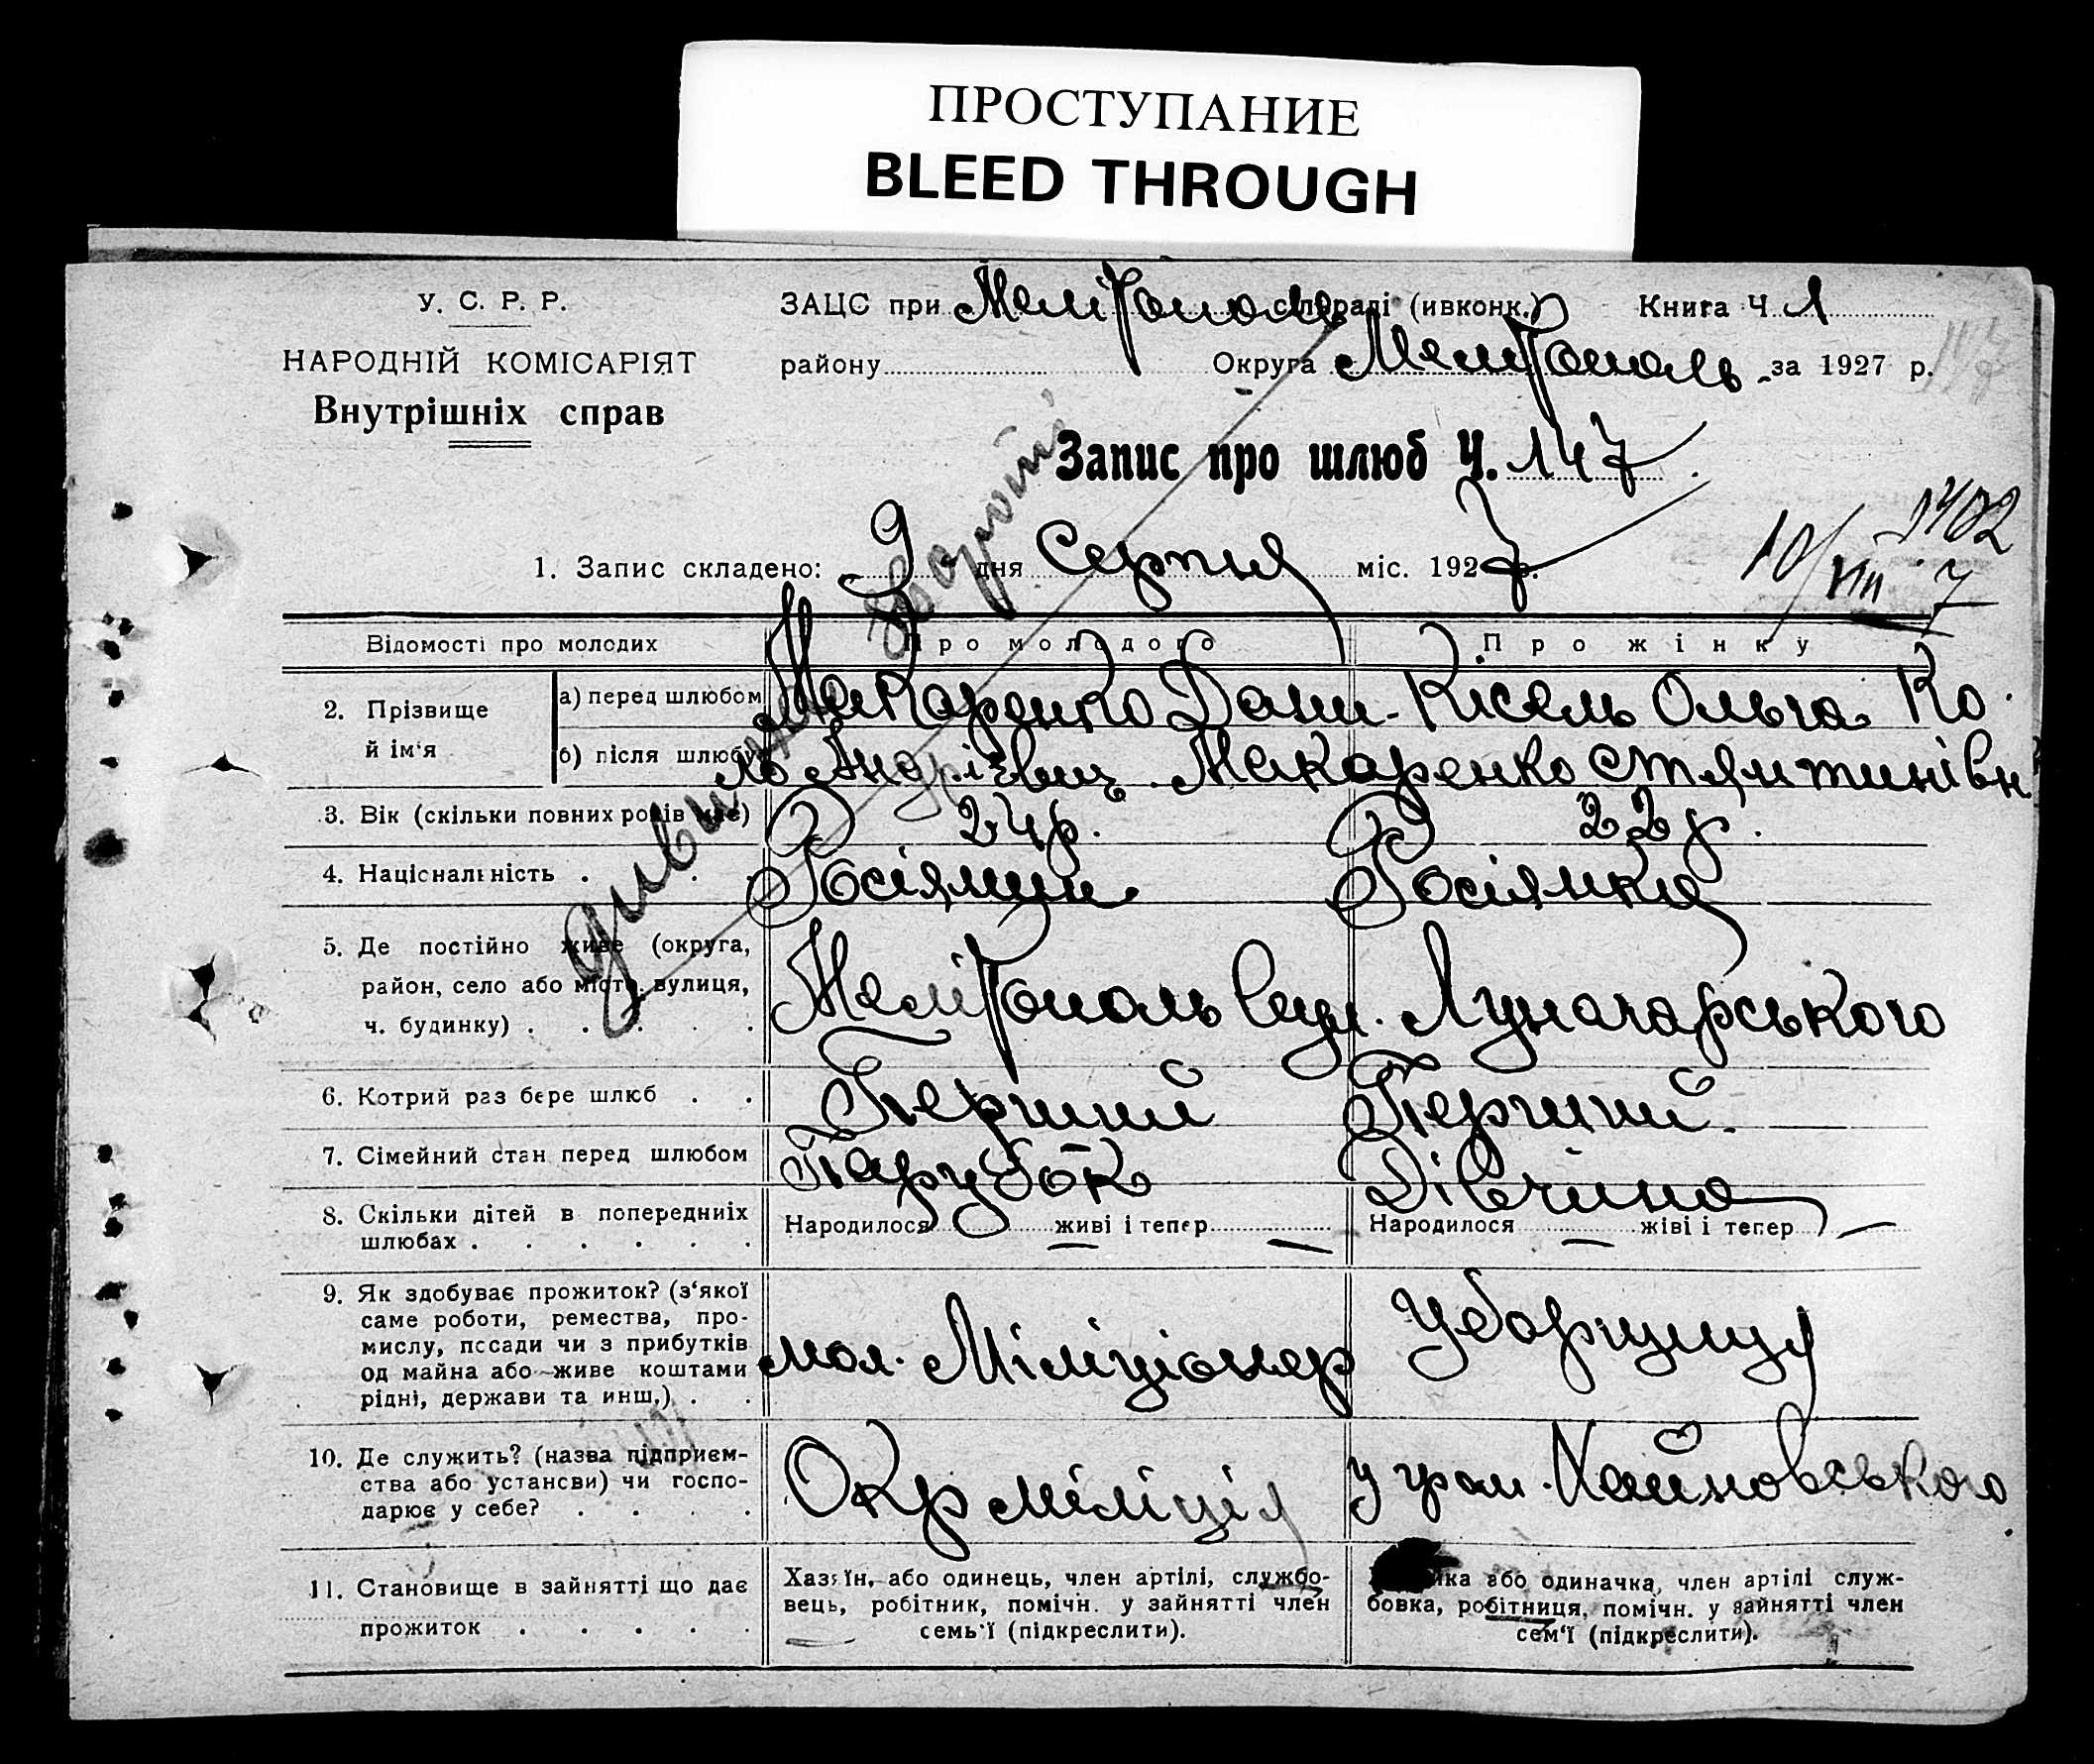 ПРОСТУПАНИЕ
BLEED THROUGH
У. С. Р. Р.
НАРОДНІЙ КОМІСАРІЯТ
Внутрішніх справ
ЗАЦС при Мелітополь сільраді (ивконк.) Книга Ч 1
району Округа Мелітополь за 1927 р.
Запис про шлюб Ч. 147
1402
10/VIII 7
1. Запис складено: 9 дня Серпня міс. 1927 р.
дивись на звороті
Відомості про молодих Про молодого Про жінку
2. Прізвище й ім'я
а) перед шлюбом Макаренко Дани- Кісель Ольга Ко
б) після шлюбу ло Андрієвич Макаренко стянтинівн
3. Вік (скільки повних років має) 24 р. 22 р.
4. Національність . . . Росіянин Росіянка
5. Де постійно живе (округа,
район, село або місто, вулиця,
ч. будинку) . . . . .
Мелітополь вул. Луначарського
6. Котрий раз бере шлюб . . Перший Перший.
7. Сімейний стан перед шлюбом Парубок Дівчина
8. Скільки дітей в попередниіх
шлюбах . . . . . .
Народилося — живі і тепер — Народилося — жіві і тепер —
9. Як здобуває прожиток? (з'якої
саме роботи, ремества, про-
мислу, посади чи з прибутків
од майна або живе коштами
рідні, держави та инш.) . .
мол. Міліціонер Уборщиця
10. Де служить? (назва підприєм-
ства або устансви) чи госпо-
дарює у себе? . . . .
Окрміліція у гром. Хайновського
11. Становище в зайнятті що дає
прожиток . . . . .
Хазяїн, або одинець, член артілі, службо-
вець, робітник, помічн. у зайнятті член
семь'ї (підкреслити).
йка або одиначка, член артілі служ-
бовка, робітниця, помічн. у зайнятті член
сем'ї (підкреслити).